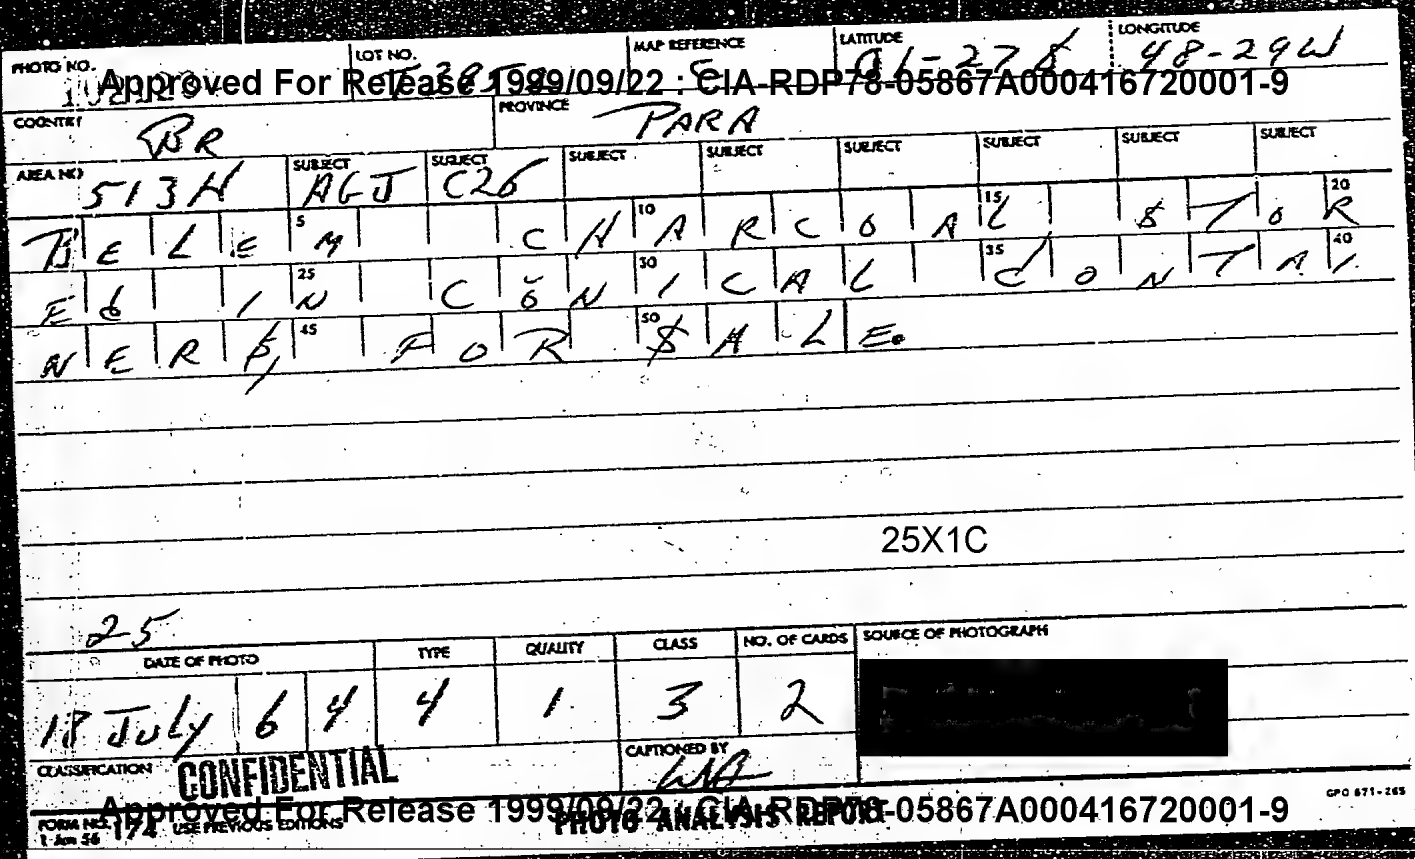 PHOTO NO. LOT NO. MAP REFERENCE LATITUDE LONGITUDE
E 01-27S 48-29W
Approved For Release 1999/09/22 : CIA-RDP78-05867A000416720001-9
COUNTRY PROVINCE
BR PARA
AREA NO SUBJECT SUBJECT SUBJECT SUBJECT SUBJECT SUBJECT SUBJECT SUBJECT
513H AGJ C26
5 10 15 20
BELEM CHARCOAL STOR
25 30 35 40
ED IN CONICAL CONTAI
45 50
NERS, FOR SALE.
25X1C
25
DATE OF PHOTO TYPE QUALITY CLASS NO. OF CARDS SOURCE OF PHOTOGRAPH
18 July 6 4 4 1 3 2
CLASSIFICATION CONFIDENTIAL CAPTIONED BY
GPO 871-265
Approved For Release 1999/09/22 : CIA-RDP78-05867A000416720001-9
FORM NO. 174 USE PREVIOUS EDITIONS PHOTO ANALYSIS REPORT
1 Jun 56